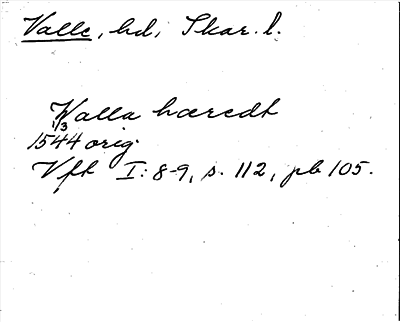 Valle, hd, Skar. l.
Walla hæredt
1/3
1544 orig.
Vft I: 8-9, s. 112, pb 105.